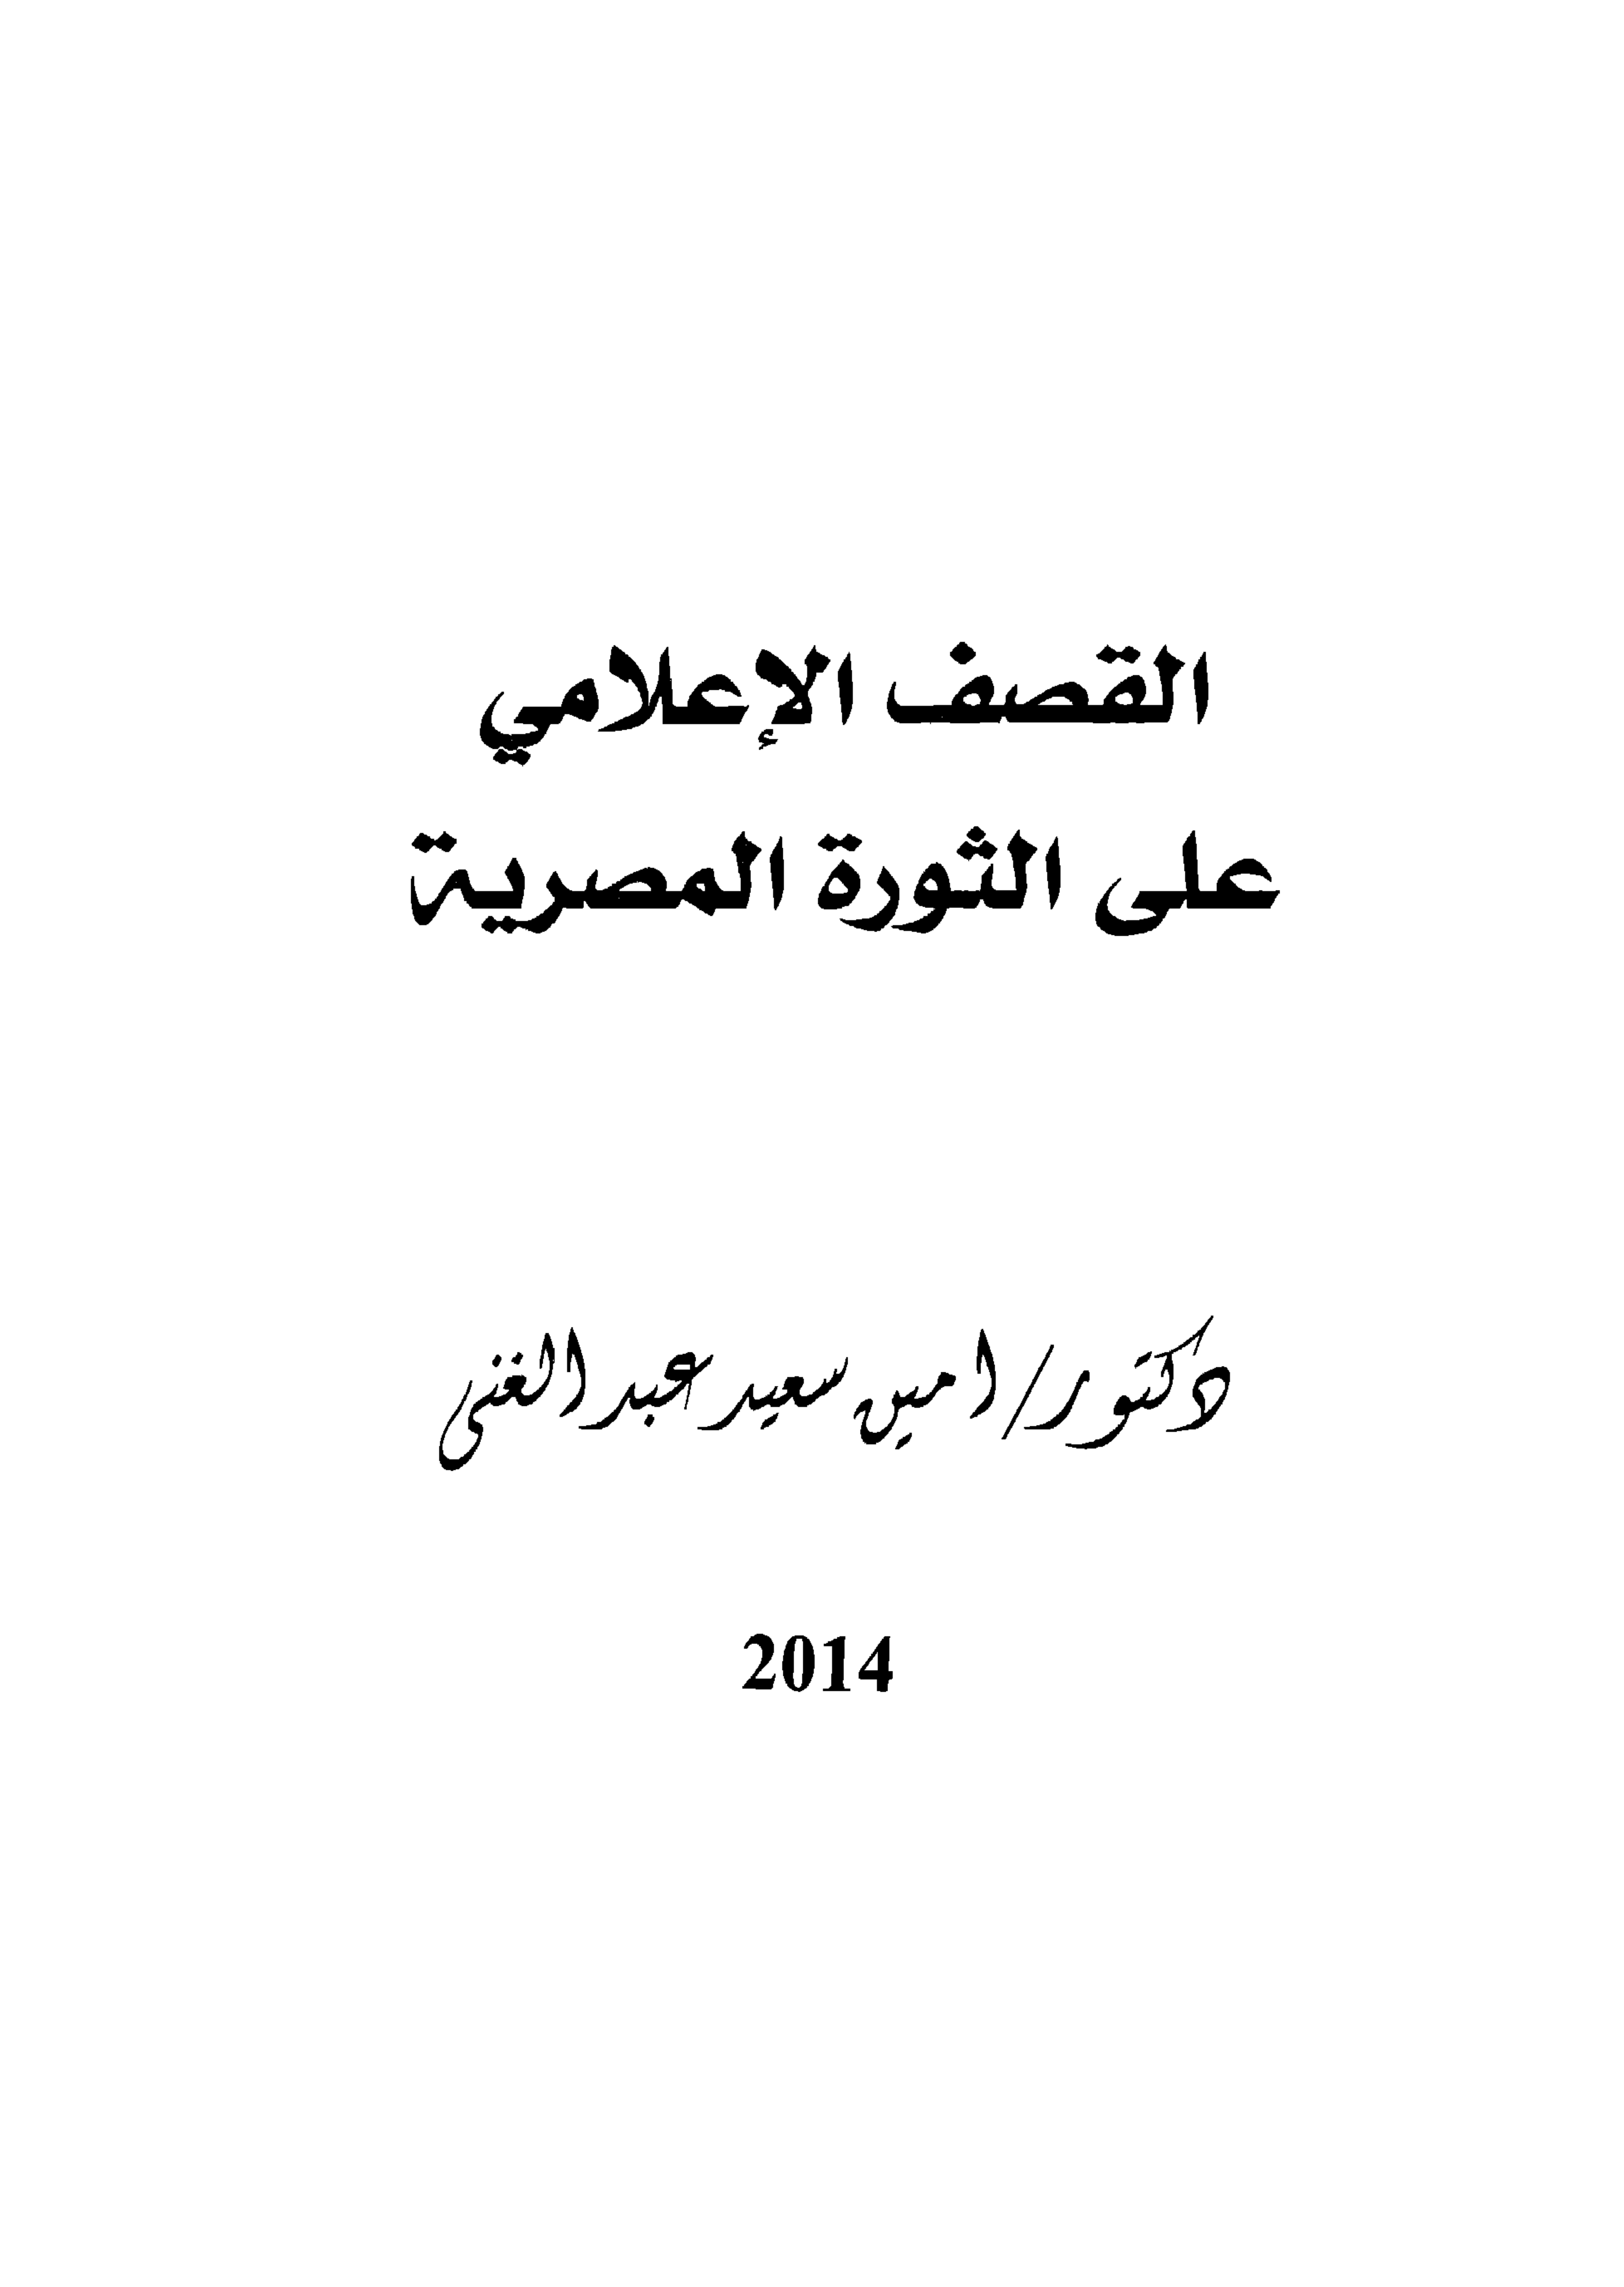 القصف الإعلامي
على الثورة المصرية
دكتور/ امين سعيد عبد الغنى
2014